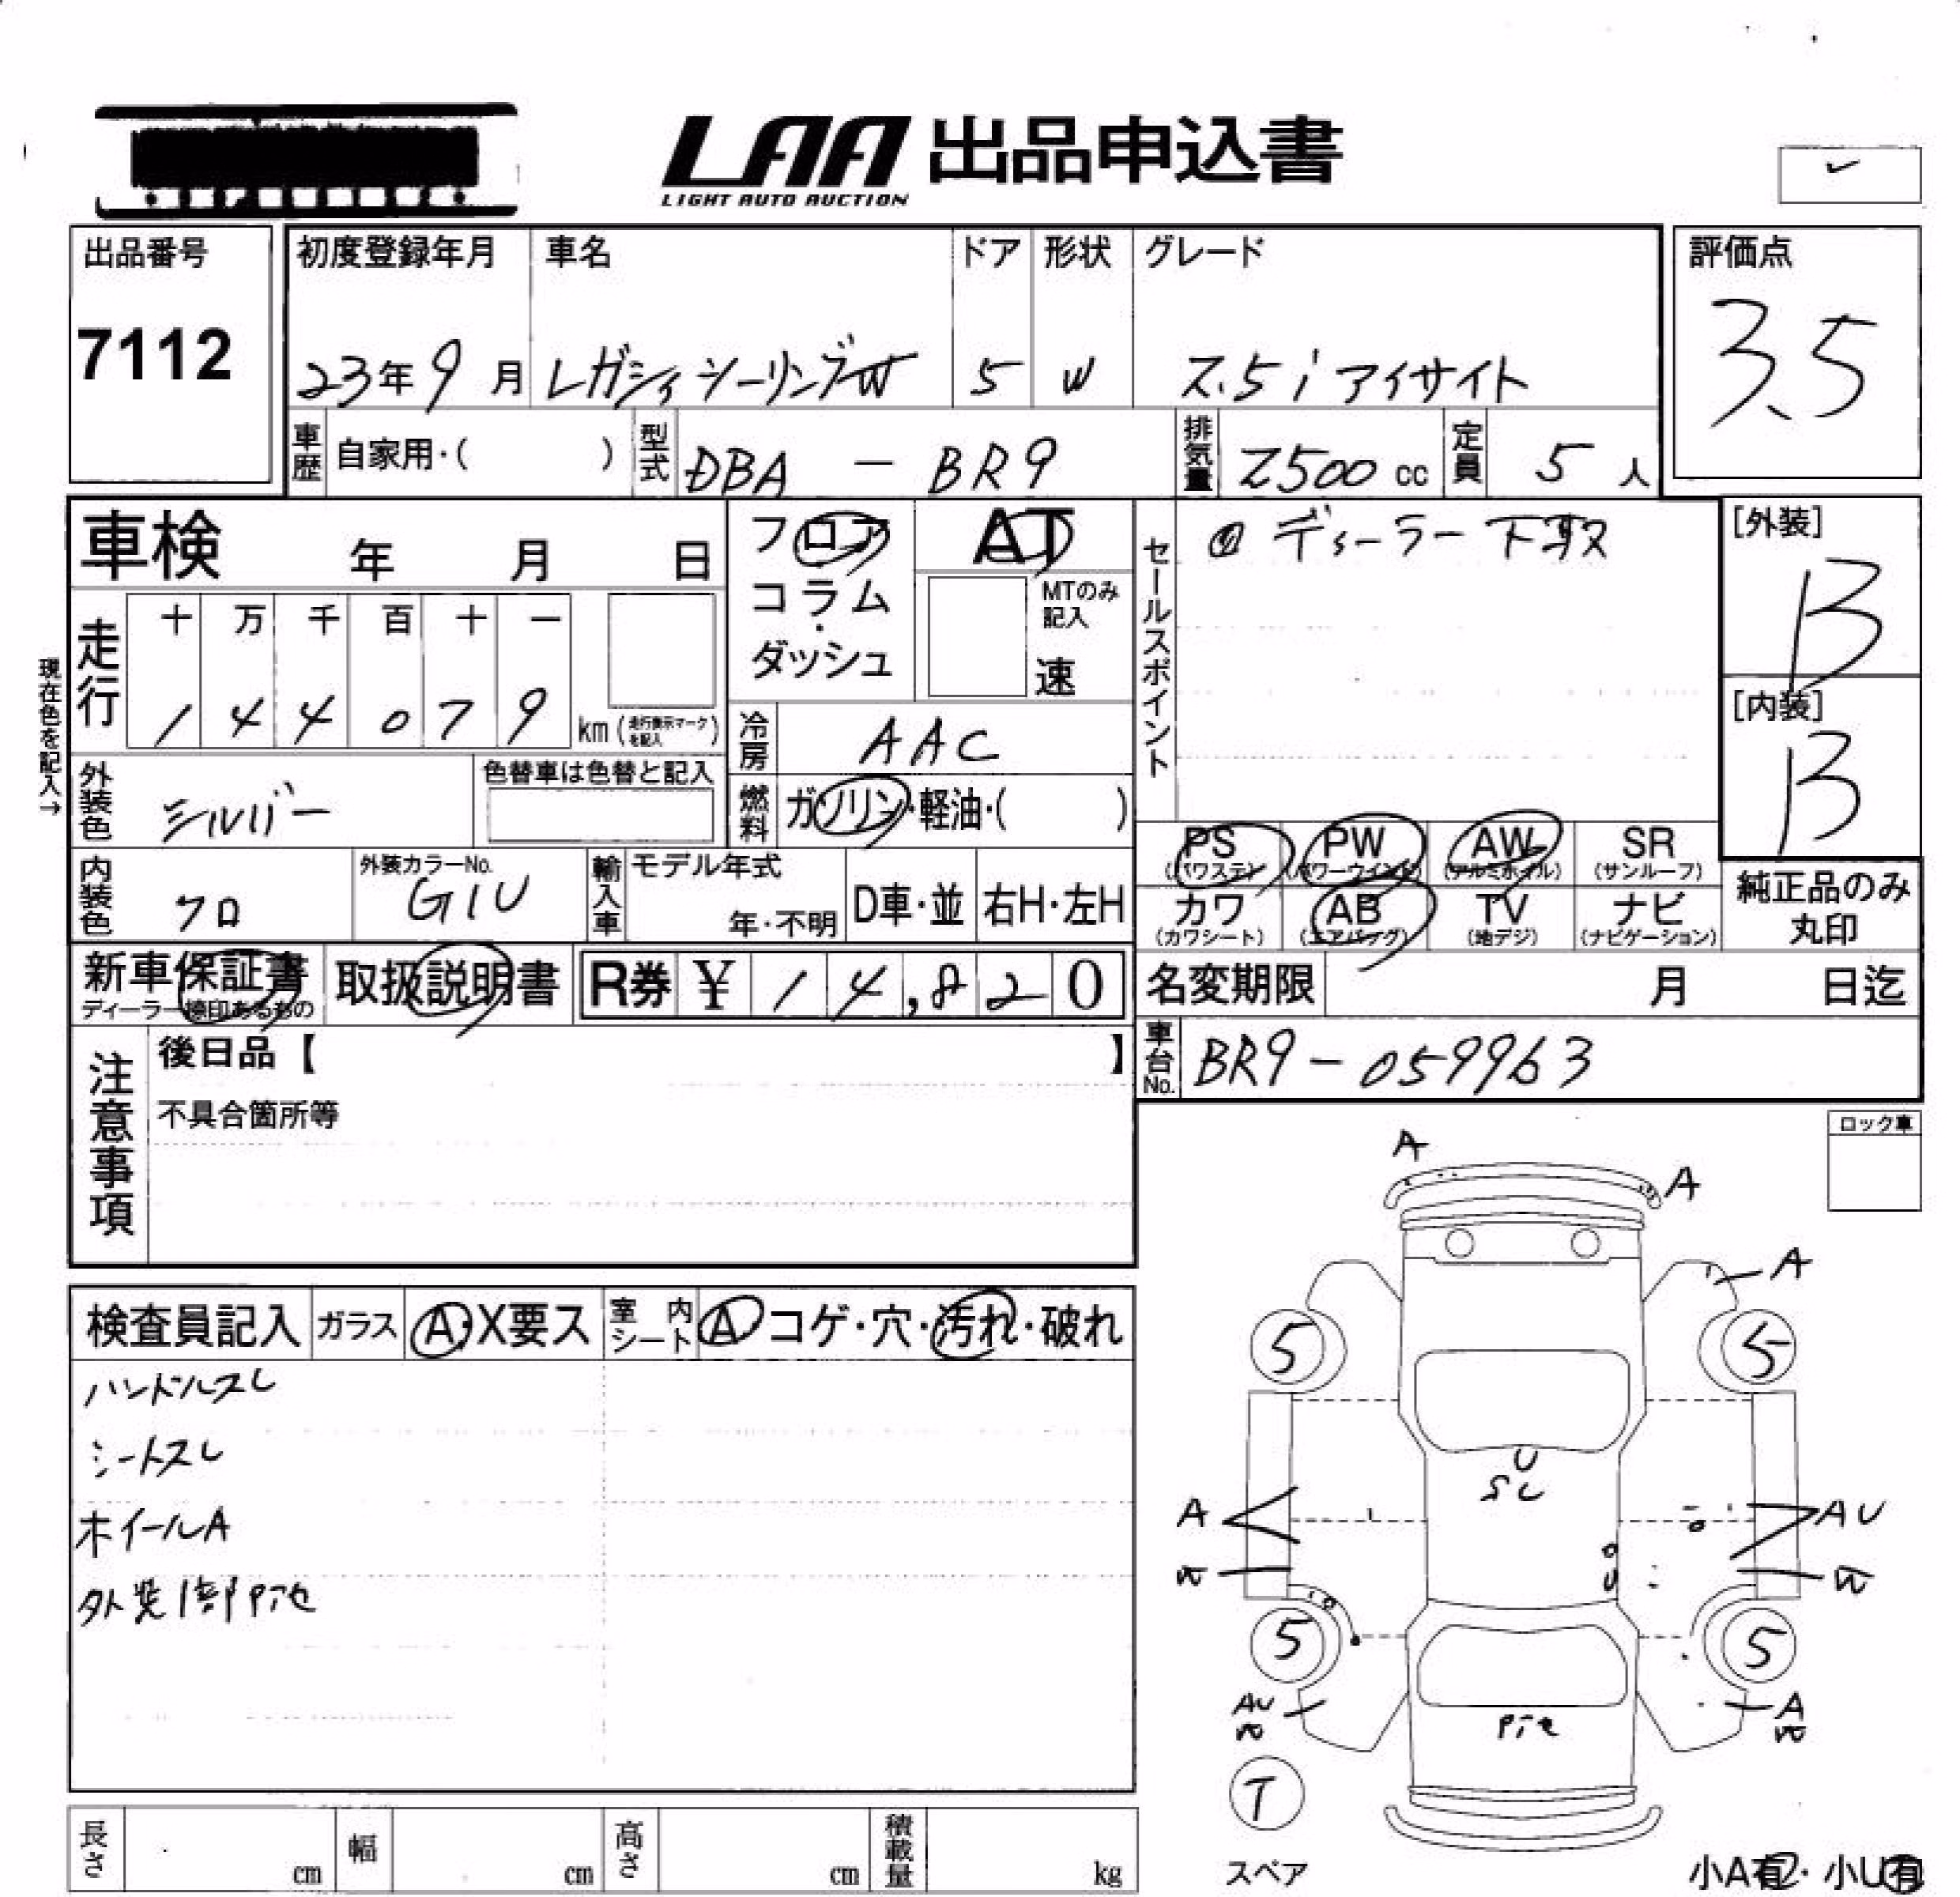 LAA 出品申込書
LIGHT AUTO AUCTION
出品番号
7112
初度登録年月 車名 ドア 形状 グレード
23年 9月 レガシィツーリングW 5 W 2.5i アイサイト
評価点
3.5
車歴 自家用・( ) 型式 DBA - BR9 排気量 2500 cc 定員 5 人
車検 年 月 日
フロア
コラム
・
ダッシュ
AT
MTのみ
記入
速
セールスポイント
◎ ディーラー下取
[外装]
B
[内装]
B
現在色を記入→
走行
十 万 千 百 十 一
1 4 4 0 7 9 km (走行表示マークを記入)
冷房 AAC
外装色 シルバー
色替車は色替と記入
燃料 ガソリン・軽油・( )
内装色 クロ
外装カラーNo.
G1U
輸入車 モデル年式
年・不明
D車・並 右H・左H
PS
(パワステ)
PW
(パワーウインド)
AW
(アルミホイル)
SR
(サンルーフ)
カワ
(カワシート)
AB
(エアバッグ)
TV
(地デジ)
ナビ
(ナビゲーション)
純正品のみ
丸印
新車保証書
ディーラー捺印あるもの
取扱説明書
R券 ¥ 1 4,8 2 0
名変期限 月 日迄
車台No. BR9-059963
注意事項
後日品【 】
不具合箇所等
ロック車
検査員記入 ガラス A・X要ス 室内シート A コゲ・穴・汚れ・破れ
ハンドルスレ
シートスレ
ホイールA
外装1部Pテセ
A
A
A
5
5
U
SU
A
AU
W
W
5
5
AU
W
A
W
Pテセ
T
スペア
長さ cm 幅 cm 高さ cm 積載量 kg
小A有・小U有